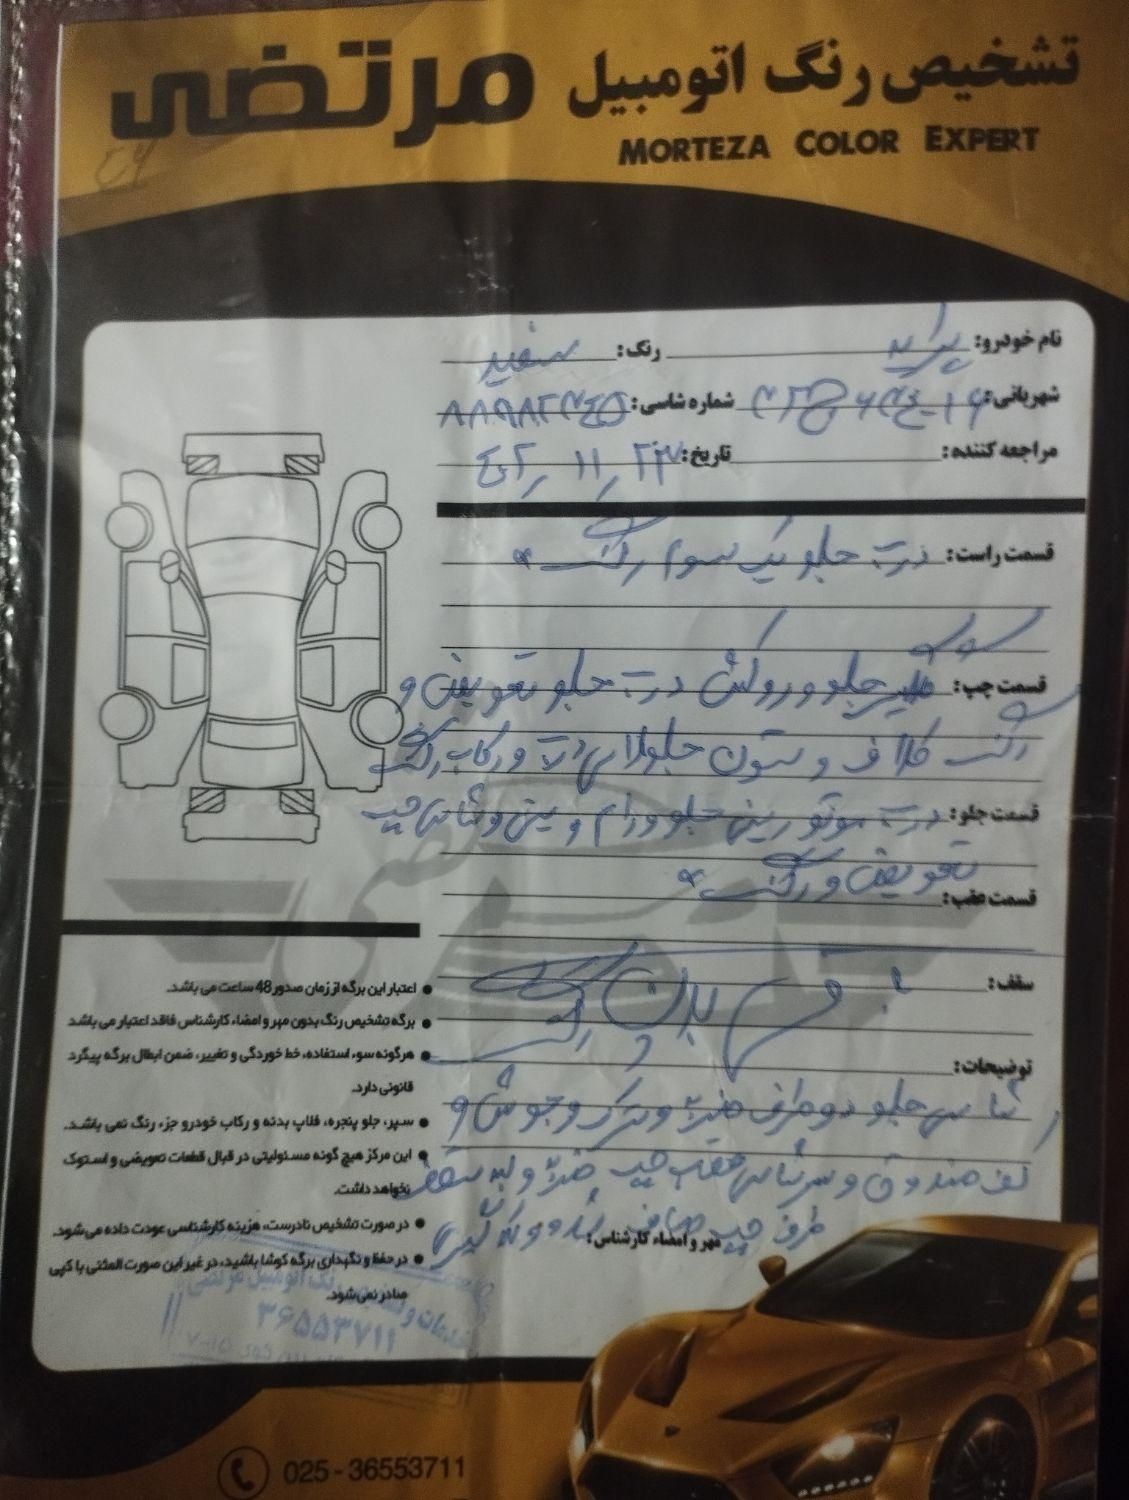 تشخیص رنگ اتومبیل مرتضی
MORTEZA COLOR EXPERT
نام خودرو: پراید رنگ: سفید
شهربانی: شماره شاسی:
مراجعه کننده: تاریخ: ۴۰۲/۱۱/۲۷
قسمت راست: درب جلو یک سوم رنگ
قسمت چپ: گلگیر جلو و روکش درب جلو تعویض و
رنگ کلاف و ستون جلو لای درب و رکاب رنگ
قسمت جلو: درب موتور سینی جلو و رام و سینی و شاسی چپ
تعویض و رنگ
قسمت عقب:
سقف:
توضیحات:
شاسی جلو دو طرف ضربه و ترک و جوش و
کف صندوق و سر شاسی عقب چپ ضربه و لبه سقف
طرف چپ صافکاری شده
مهر و امضاء کارشناس:
● اعتبار این برگه از زمان صدور 48 ساعت می باشد.
● برگه تشخیص رنگ بدون مهر و امضاء کارشناس فاقد اعتبار می باشد
● هرگونه سوء استفاده، خط خوردگی و تغییر، ضمن ابطال برگه پیگرد
قانونی دارد.
● سپر، جلو پنجره، قلاب بدنه و رکاب خودرو جزء رنگ نمی باشد.
● این مرکز هیچ گونه مسئولیتی در قبال قطعات تعویضی و استوک
نخواهد داشت.
● در صورت تشخیص نادرست، هزینه کارشناسی عودت داده می شود.
● در حفظ و نگهداری برگه کوشا باشید، در غیر این صورت المثنی یا کپی
صادر نمی شود.
۳۶۵۵۳۷۱۱
025 - 36553711